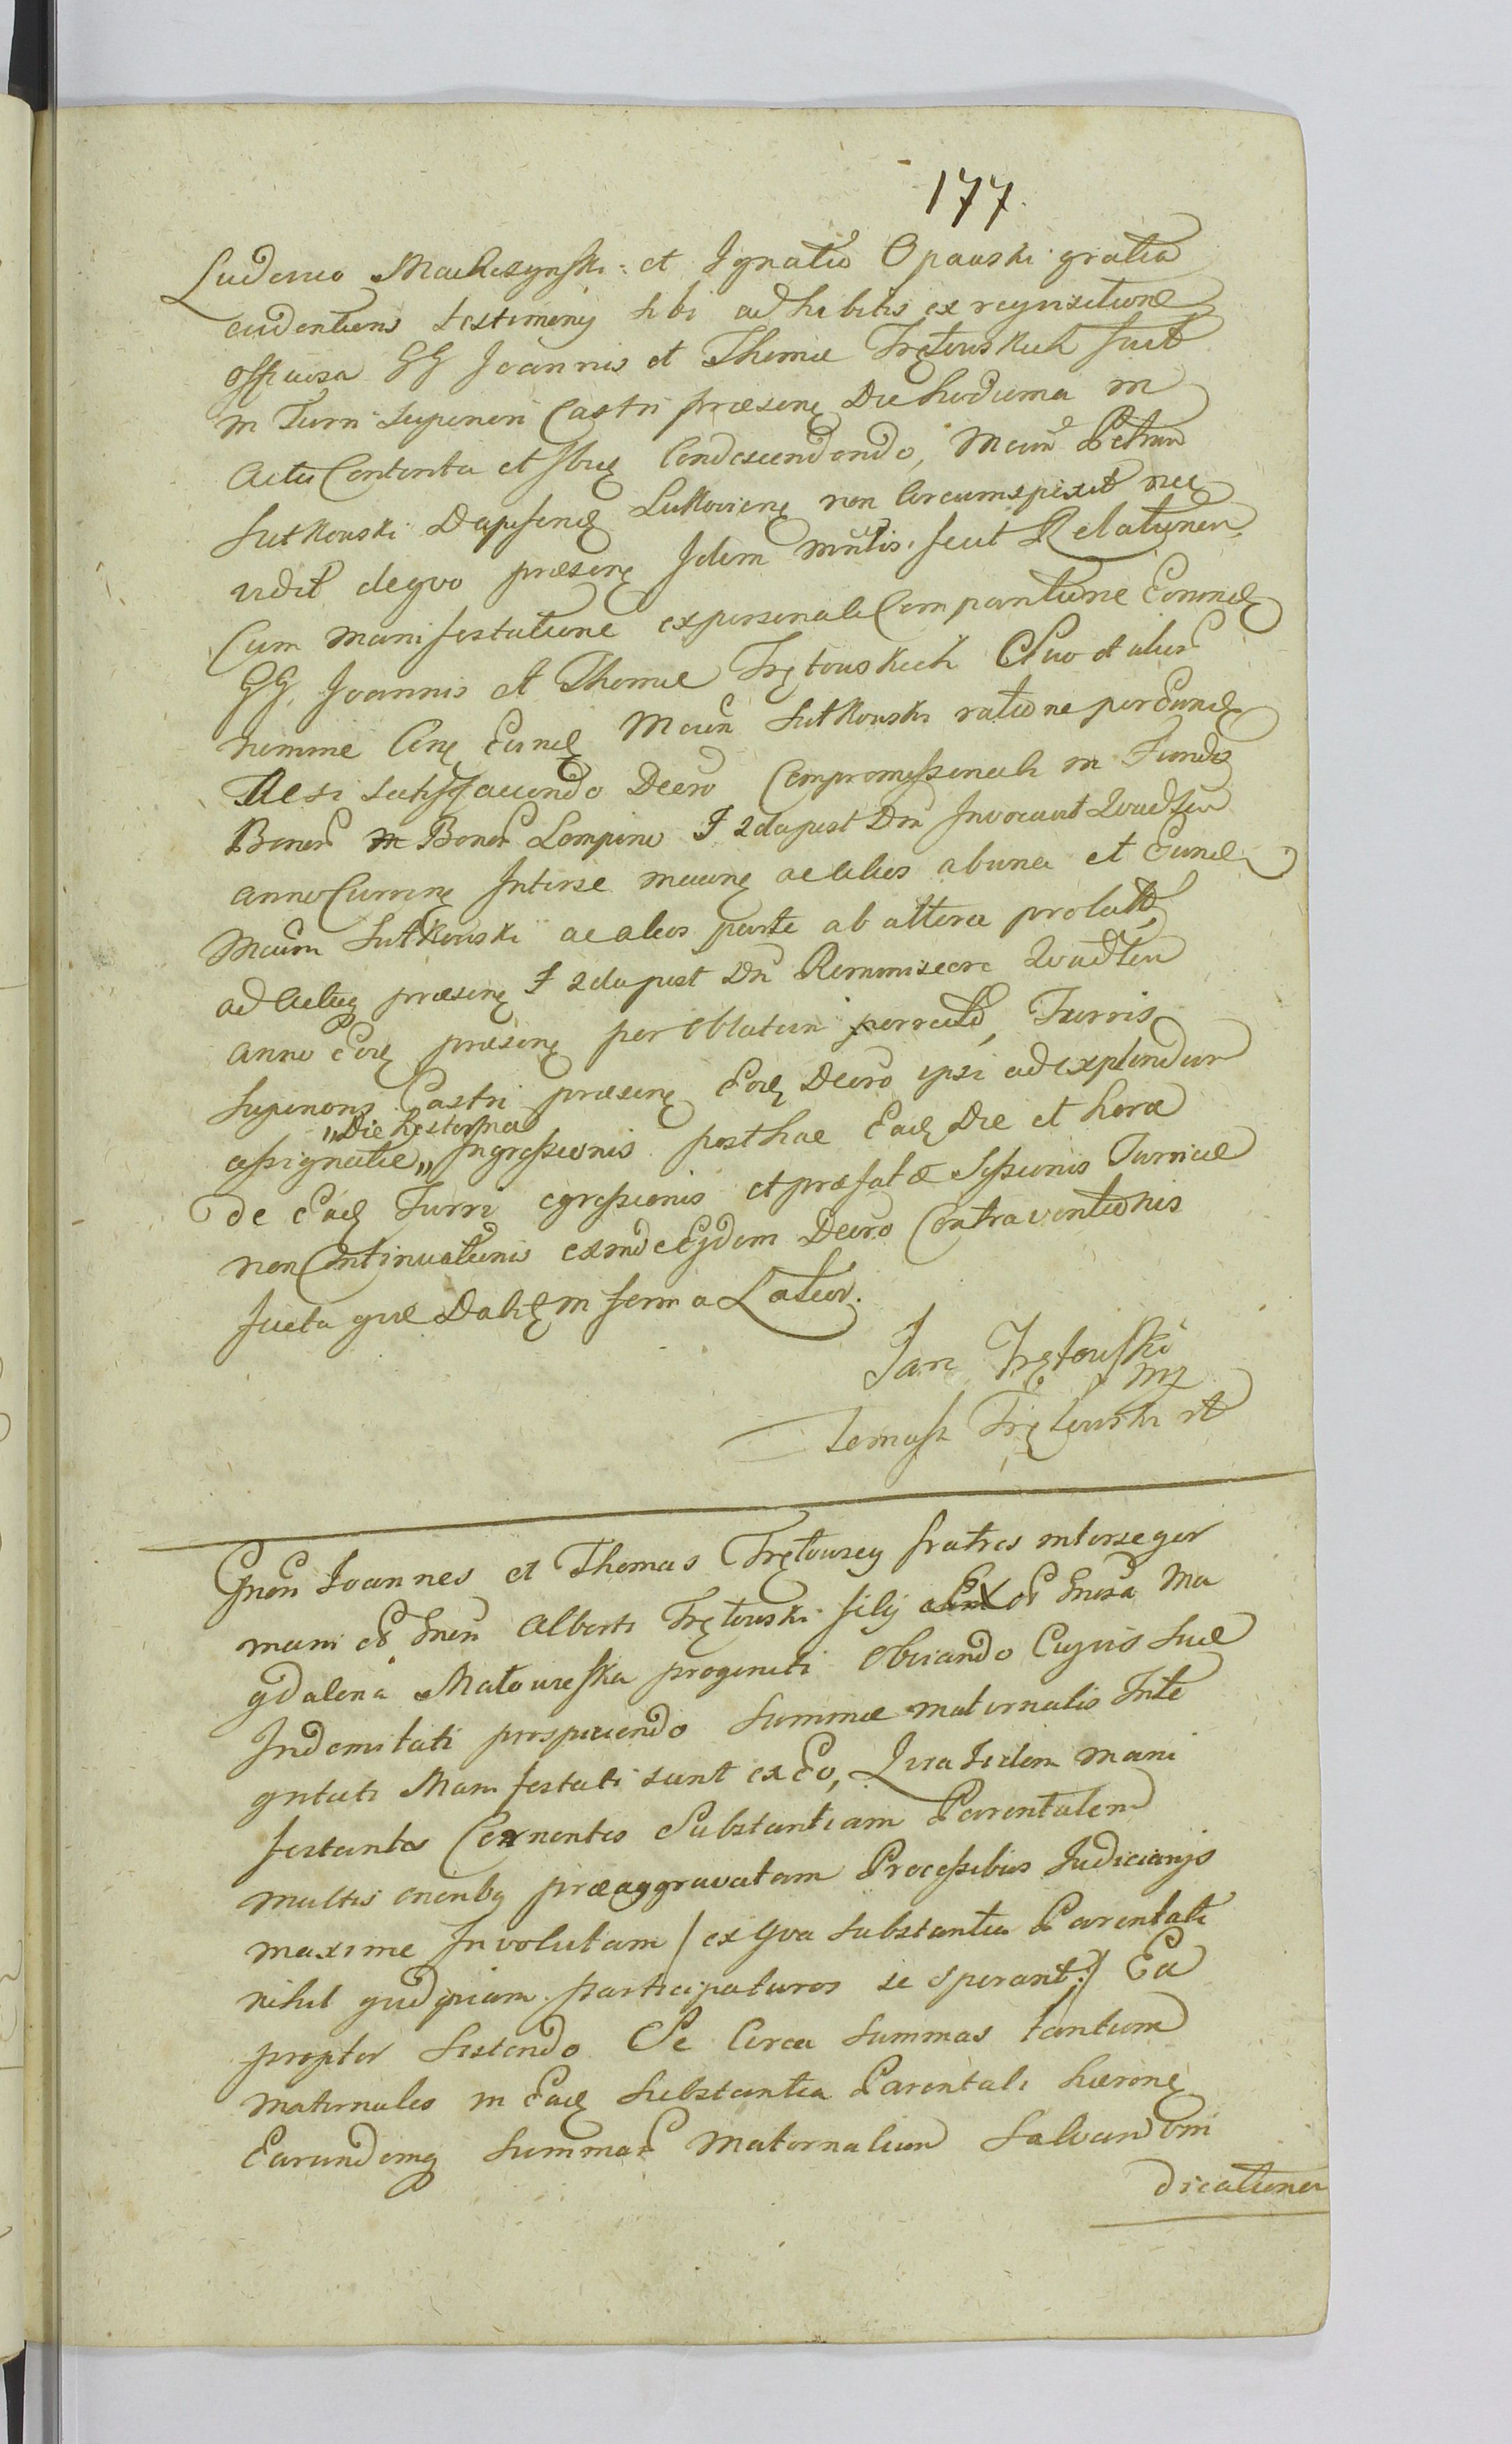 177.
Ludovico Mackszynski et Ignatio Opauski gratia
evidentioris testimonij sibi adhibitis ex requisitione
officiosa GG Joannis et Thomae Trętowskich fuit
in Turri superiori Castri praesenę Die hodierna in
actu Contenta et ibidę Condescendendo, Mcum Petrum
Sutkowski Dapiferidę Lukovienę non Circumspexit nec
vidit de quo praesenę Idem mnlis. fecit Relationem
Cum manifestatione ex personali Comparitione Eorundę
GG. Joannis et Thomae Trętowskich Suo et alior
nomine Conę Eundę Mcum Sutkowski ratione per Eundę
Satisfaciendo Decro Compromissionali in Fundo
Bonor Bonor Lompino F 2da post Dm Invocavit Quadlem
anno Currenę Interse macionę ac alios ab una et Eundę
Mcum Sutkowski ac alios parte ab altera prolato,
ad Actaę praesenę F 2da post Dm Reminiscere Quadlem
anno Eodę praesenę per Oblatam porrecto, Turris
superioris Castri praesenę Eodę Decro ipsi ad explendum
"Die hesterna
assignatae" Ingressionis post hac Eadę Die et hora
de Eadę Turri egressionis et praefatae Sessionis Turriae
non Continuationis exinde Ejdem Decro Contraventionis
facta quae Dabitę in forma Latior.
Jan Trętowski
mp
Tomasz Trętowski
Gnen Joannes et Thomas Trętowscy fratres inter se ger
mani og Gnen Alberti Trętowski filij Ex og Gnosa Ma
gdalena Matowieska progeniti Obviando Cujvis Suae
Indemitati prospiciendo Summae maternalis Inte
gritati Manifestati sunt ex Eo, Quia Iidem mani
festantes Cernentes Substantiam Parentalem
multis oneribq praeaggravatam Processibus Judiciarijs
maxime Involutam / ex qva substantia Parentali
nihil qvidqviam participaturos se sperant:/ Ea
propter Sistendo Se Circa Summas tantum
maternales in Eadę Substantia Parentali haerenę
Earundemq Summar Maternalium Salvam Vin
dicationem